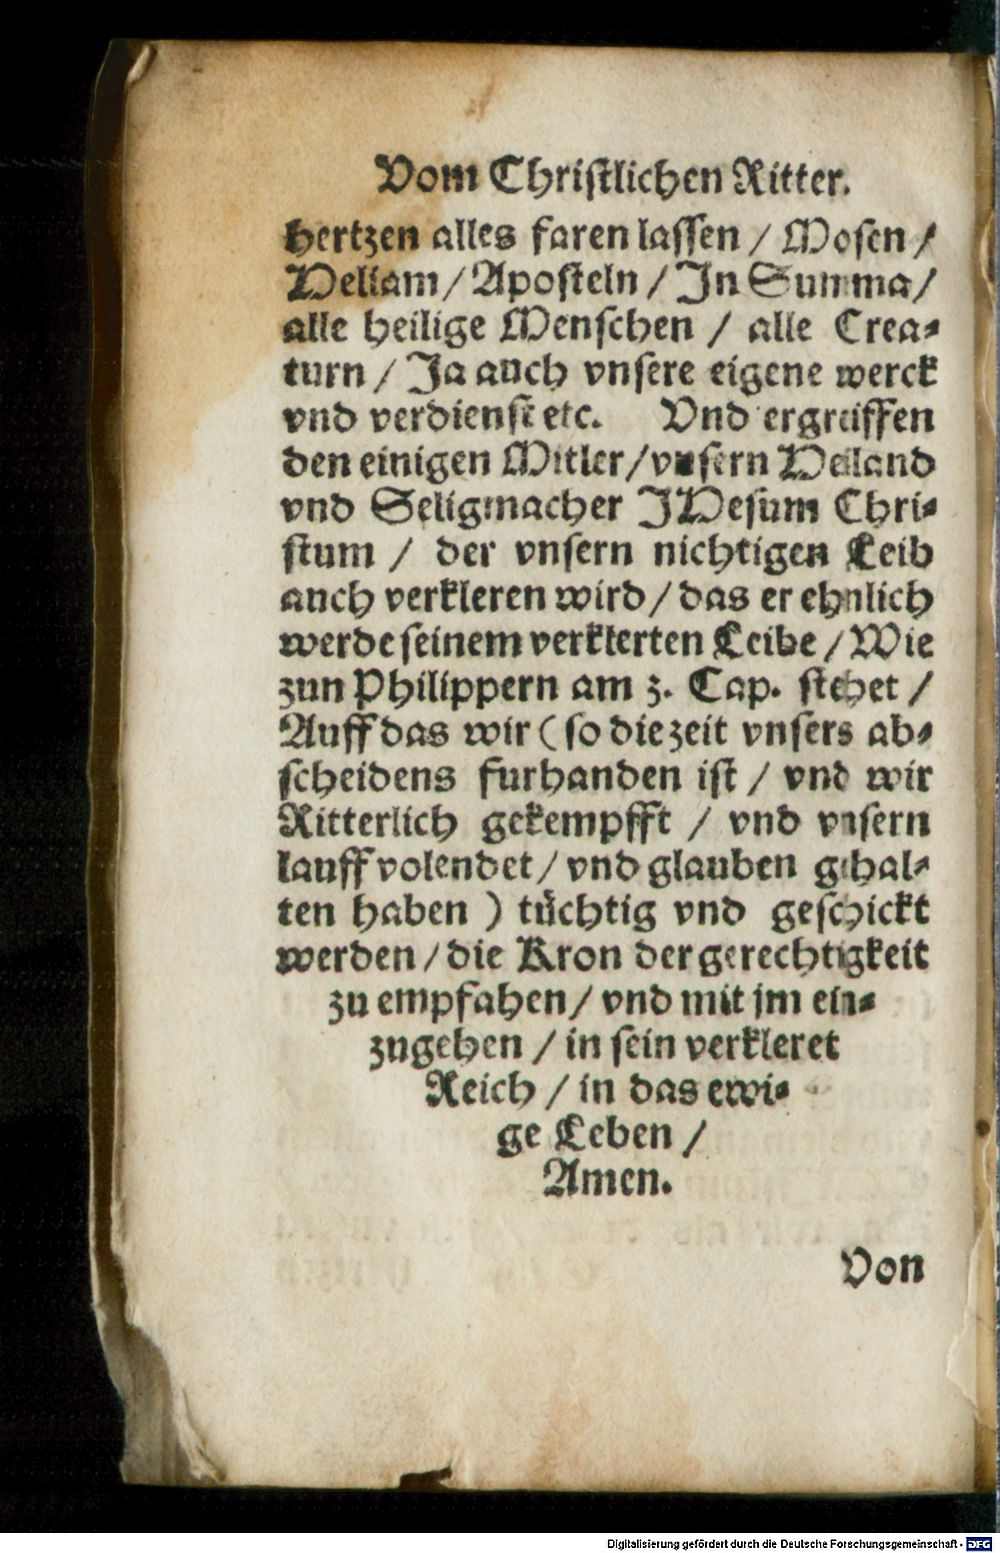 Vom Christlichen Ritter.
hertzen alles faren lassen / Mosen /
Heliam / Aposteln / In Summa /
alle heilige Menschen / alle Crea-
turn / Ja auch vnsere eigene werck
vnd verdienst etc. Vnd ergreiffen
den einigen Mitler / vnsern Heiland
vnd Seligmacher JHesum Chri-
stum / der vnsern nichtigen Leib
auch verkleren wird / das er ehnlich
werde seinem verklerten Leibe / Wie
zun Philippern am 3. Cap. stehet /
Auff das wir ( so die zeit vnsers ab-
scheidens furhanden ist / vnd wir
Ritterlich gekempfft / vnd vnsern
lauff volendet / vnd glauben gehal-
ten haben ) tüchtig vnd geschickt
werden / die Kron der gerechtigkeit
zu empfahen / vnd mit jm ein-
zugehen / in sein verkleret
Reich / in das ewi-
ge Leben /
Amen.
Von
Digitalisierung gefördert durch die Deutsche Forschungsgemeinschaft - DFG